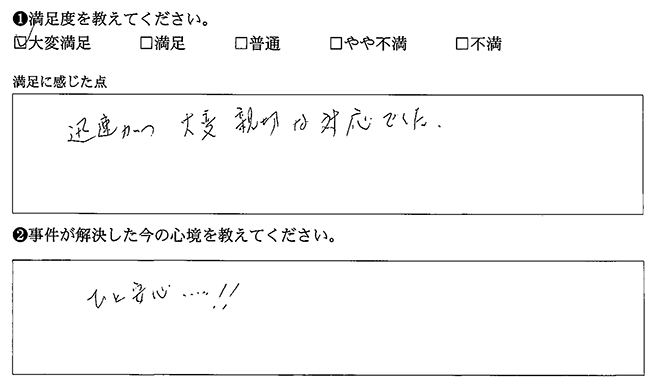 ❶満足度を教えてください。
☑大変満足 □満足 □普通 □やや不満 □不満
満足に感じた点
迅速かつ 大変 親切な対応でした.
❷事件が解決した今の心境を教えてください。
ひと安心....!!